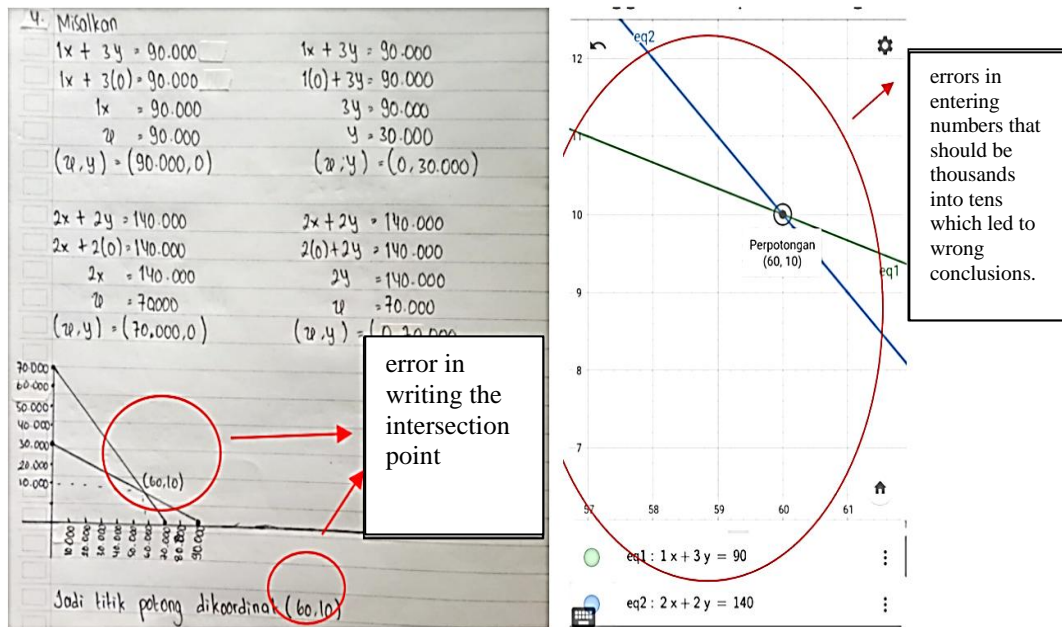 4. Misalkan
1x + 3y = 90.000
1x + 3(0) = 90.000
1x = 90.000
x = 90.000
(x, y) = (90.000, 0)
1x + 3y = 90.000
1(0) + 3y = 90.000
3y = 90.000
y = 30.000
(x, y) = (0, 30.000)
2x + 2y = 140.000
2x + 2(0) = 140.000
2x = 140.000
x = 70000
(x, y) = (70.000, 0)
2x + 2y = 140.000
2(0) + 2y = 140.000
2y = 140.000
x = 70.000
(x, y) =
70.000
60.000
50.000
40.000
30.000
20.000
10.000
(60,10)
10.000
20.000
30.000
40.000
50.000
60.000
70.000
80.000
90.000
Jadi titik potong dikoordinat (60,10)
error in
writing the
intersection
point
eq2
12
11
10
Perpotongan
(60, 10)
eq1
9
8
7
57
58
59
60
61
eq1 : 1 x + 3 y = 90
eq2 : 2 x + 2 y = 140
errors in
entering
numbers that
should be
thousands
into tens
which led to
wrong
conclusions.